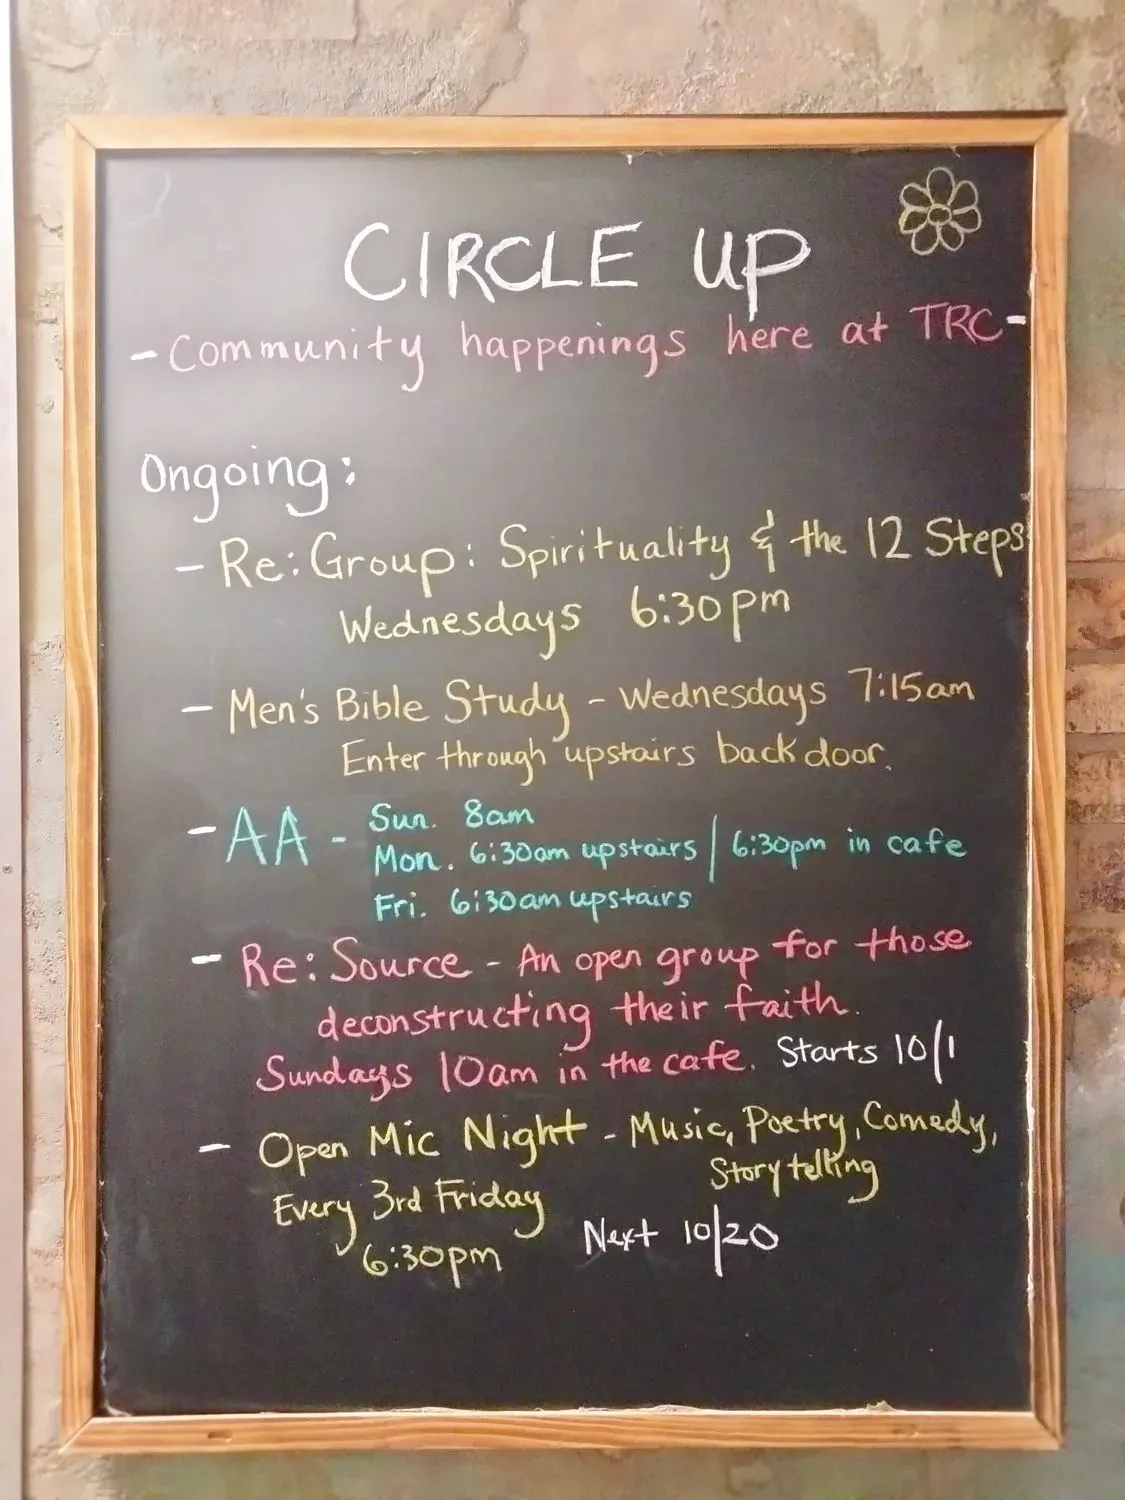 CIRCLE UP
- Community happenings here at TRC -
Ongoing:
- Re: Group: Spirituality & the 12 Steps
Wednesdays 6:30pm
- Men's Bible Study - Wednesdays 7:15am
Enter through upstairs back door.
- AA - Sun. 8am
Mon. 6:30am upstairs / 6:30pm in cafe
Fri. 6:30am upstairs
- Re: Source - An open group for those
deconstructing their faith.
Sundays 10am in the cafe. Starts 10/1
- Open Mic Night - Music, Poetry, Comedy,
Storytelling
Every 3rd Friday
6:30pm Next 10/20